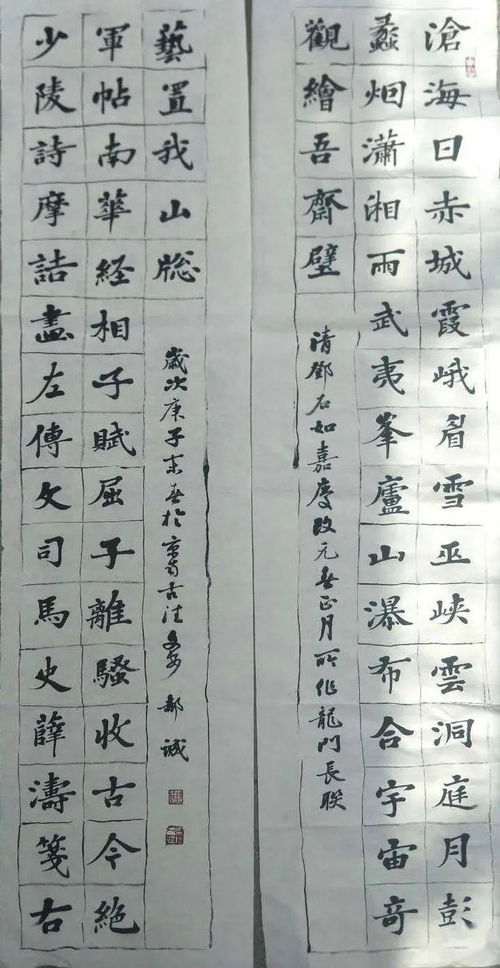 滄海日赤城霞峨眉雪巫峽雲洞庭月彭
蠡烟瀟湘雨武夷峯廬山瀑布合宇宙奇
觀繪吾齋壁
清鄧石如嘉慶改元春正月所作龍門長联
少陵詩摩詰畫左傳文司馬史薛濤箋右
軍帖南華経相子賦屈子離騷收古今絕
藝置我山牎
歲次庚子末春於京南古 郝誠